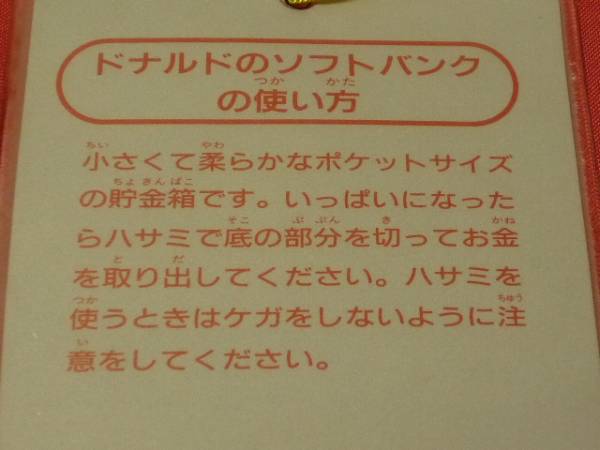 ドナルドのソフトバンク
の使い方
小さくて柔らかなポケットサイズ
の貯金箱です。いっぱいになった
らハサミで底の部分を切ってお金
を取り出してください。ハサミを
使うときはケガをしないように注
意をしてください。